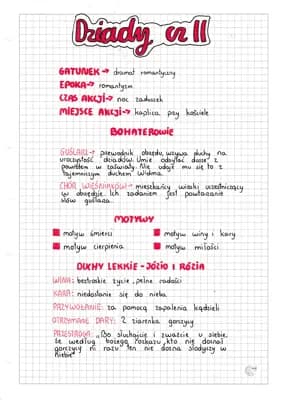 Dziady cz II
GATUNEK → dramat romantyczny
EPOKA → romantyzm
CZAS AKCJI → noc zaduszek
MIEJSCE AKCJI → kaplica przy kościele
BOHATEROWIE
GUŚLARZ - przewodnik obrzędu, wzywa duchy na
uroczystość dziadów. Umie odsyłać dusze z
powrotem w zaświaty. Nie udaje mu się to z
tajemniczym duchem Widma.
CHÓR WIEŚNIAKÓW - mieszkańcy wioski uczestniczący
w obrzędzie. Ich zadaniem jest powtarzanie
słów guślarza.
MOTYWY
motyw śmierci motyw winy i kary
motyw cierpienia motyw miłości
DUCHY LEKKIE - JÓZIO I RÓZIA
WINA: beztroskie życie, pełne radości
KARA: niedostanie się do nieba
PRZYWOŁANIE: za pomocą zapalenia kądzieli
OTRZYMANE DARY: 2 ziarenka gorczycy
PRZESTROGA: „Bo słuchajcie i zważcie u siebie,
że według bożego rozkazu, kto nie doznał
goryczy ni razu, ten nie dozna słodyczy w
niebie"